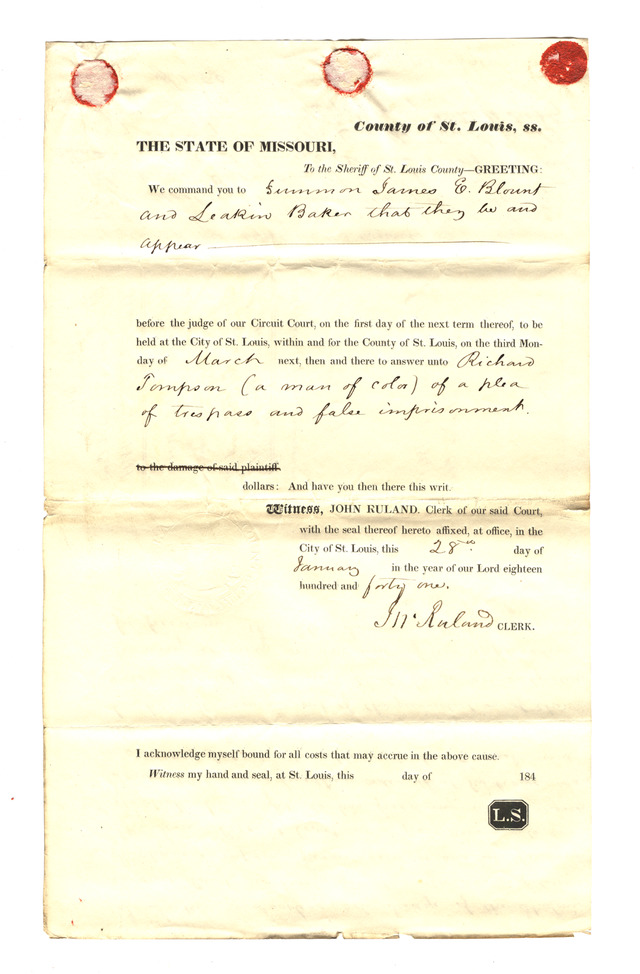 County of St. Louis, ss.
THE STATE OF MISSOURI,
To the Sheriff of St. Louis County—GREETING:
We command you to Summon James E. Blount
and Leakin Baker that they be and
appear
before the judge of our Circuit Court, on the first day of the next term thereof, to be
held at the City of St. Louis, within and for the County of St. Louis, on the third Mon-
day of March next, then and there to answer unto Richard
Tompson (a man of color) of a plea
of trespass and false imprisonment.
to the damage of said plaintiff.
dollars: And have you then there this writ.
Witness, JOHN RULAND. Clerk of our said Court,
with the seal thereof hereto affixed, at office, in the
City of St. Louis, this 28th day of
January in the year of our Lord eighteen
hundred and forty one.
Jno Ruland CLERK.
I acknowledge myself bound for all costs that may accrue in the above cause.
Witness my hand and seal, at St. Louis, this day of 184
L.S.